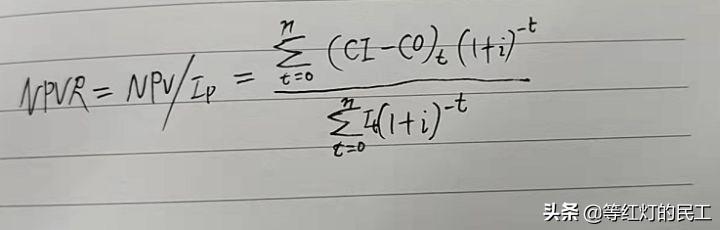 NPVR = NPV/I_p = \frac{\sum_{t=0}^{n} (CI-CO)_t (1+i)^{-t}}{\sum_{t=0}^{n} I_t(1+i)^{-t}}
头条 @等红灯的民工